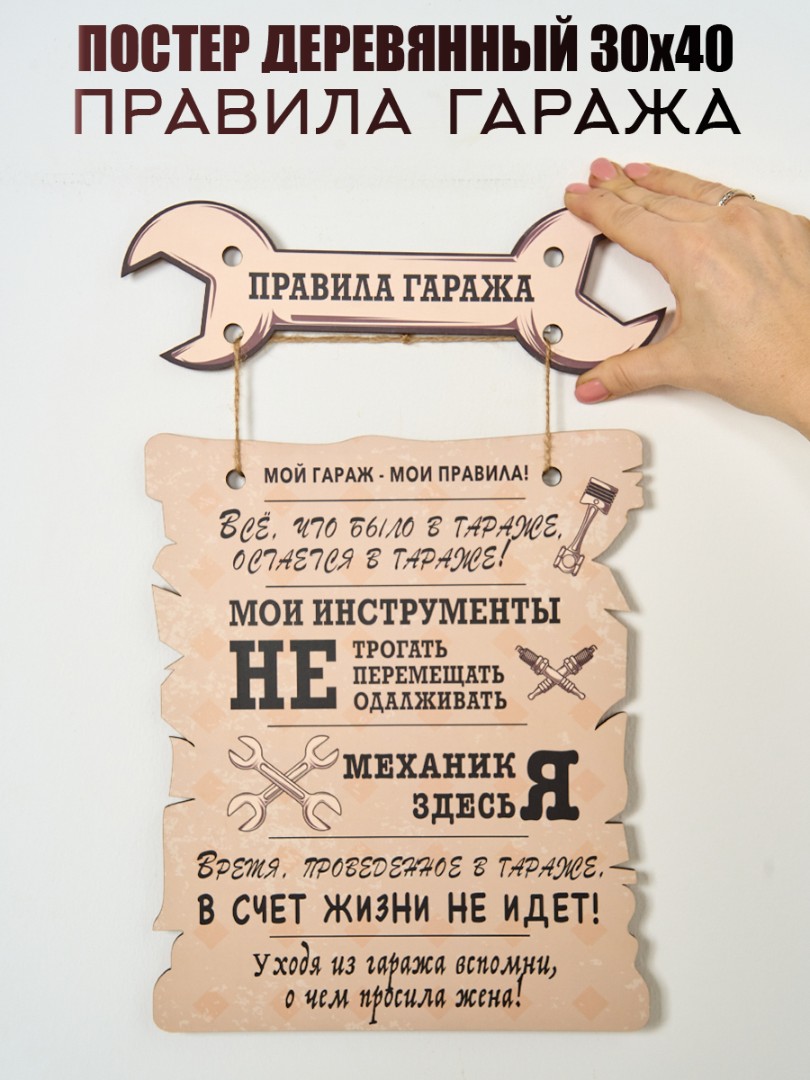 ПОСТЕР ДЕРЕВЯННЫЙ 30х40
ПРАВИЛА ГАРАЖА
ПРАВИЛА ГАРАЖА
МОЙ ГАРАЖ - МОИ ПРАВИЛА!
ВСЁ, ЧТО БЫЛО В ГАРАЖЕ,
ОСТАЕТСЯ В ГАРАЖЕ!
МОИ ИНСТРУМЕНТЫ
НЕ ТРОГАТЬ
ПЕРЕМЕЩАТЬ
ОДАЛЖИВАТЬ
МЕХАНИК
ЗДЕСЬ Я
ВРЕМЯ, ПРОВЕДЕННОЕ В ГАРАЖЕ,
В СЧЕТ ЖИЗНИ НЕ ИДЕТ!
Уходя из гаража вспомни,
о чем просила жена!